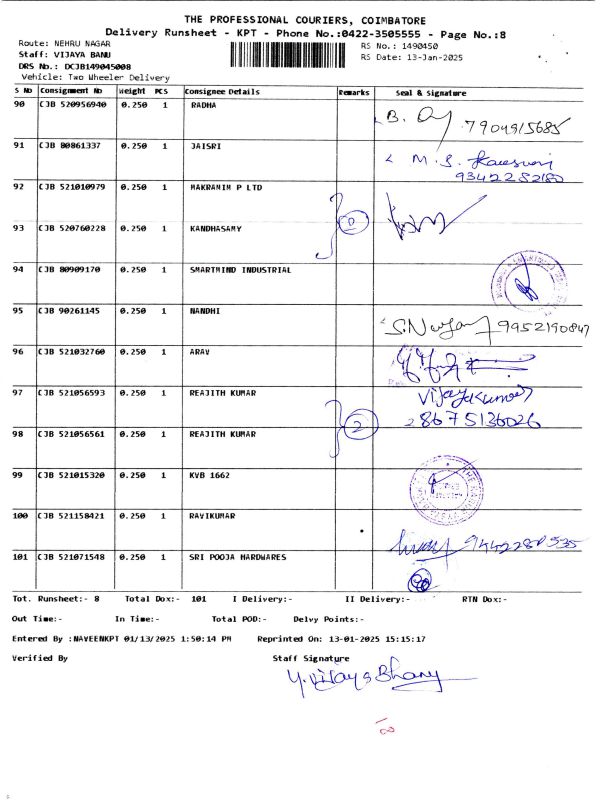 THE PROFESSIONAL COURIERS, COIMBATORE
Delivery Runsheet - KPT - Phone No.:0422-3505555 - Page No.:8
Route: NEHRU NAGAR
RS No.: 1490450
Staff: VIJAYA BANU
RS Date: 13-Jan-2025
DRS No.: DCJB149045008
Vehicle: Two Wheeler Delivery
S No Consignment No Weight PCS Consignee Details Remarks Seal & Signature
90 CJB 520956940 0.250 1 RADHA
B. 7904915685
91 CJB 80861337 0.250 1 JAISRI
M. S.
9342282180
92 CJB 521010979 0.250 1 MAKRANIM P LTD
93 CJB 520760228 0.250 1 KANDHASAMY
94 CJB 80909170 0.250 1 SMARTMIND INDUSTRIAL
95 CJB 90261145 0.250 1 NANDHI
9952190847
96 CJB 521032760 0.250 1 ARAV
97 CJB 521056593 0.250 1 REAJITH KUMAR
Vijayakumar
2 8675136026
98 CJB 521056561 0.250 1 REAJITH KUMAR
99 CJB 521015320 0.250 1 KVB 1662
100 CJB 521158421 0.250 1 RAVIKUMAR
101 CJB 521071548 0.250 1 SRI POOJA HARDWARES
Tot. Runsheet:- 8 Total Dox:- 101 I Delivery:- II Delivery:- RTN Dox:-
Out Time:- In Time:- Total POD:- Delvy Points:-
Entered By :NAVEENKPT 01/13/2025 1:50:14 PM Reprinted On: 13-01-2025 15:15:17
Verified By Staff Signature
Y. Vijaya Bhanu